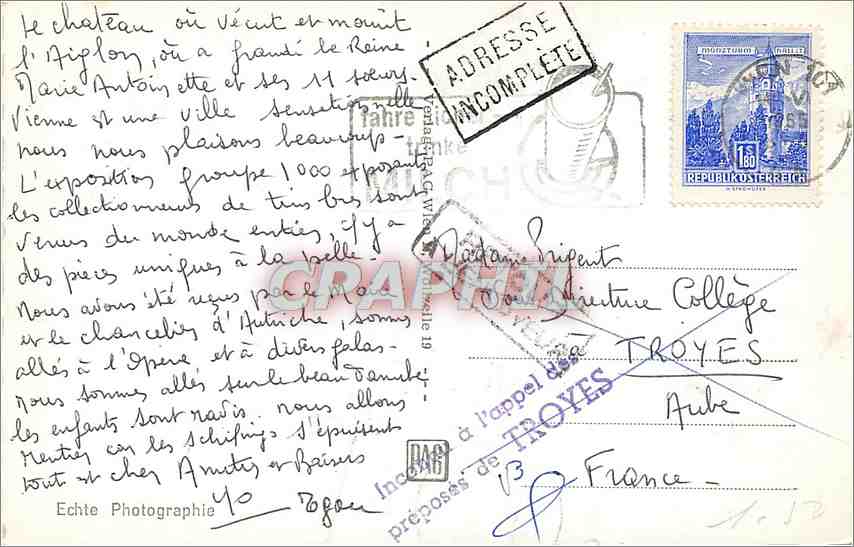 Le chateau où vécut et mourut
l'Aiglon, où a grandi la Reine
Marie Antoinette et ses 11 soeurs.
Vienne est une ville sensationnelle
nous nous plaisons beaucoup-
L'exposition groupe 1000 exposants
les collectionneurs de timbres sont
venus du monde entier, il y a
des pièces uniques à la pelle-
Nous avons été reçus par le Maire
et le chancelier d'Autriche, sommes
allés à l'Opera et à divers galas-
nous sommes allés sur le beau Danube
les enfants sont ravis. nous allons
rentrer car les schillings s'épuisent
tout est cher Amitiés et Baisers
Yo
Echte Photographie
Verlag P.A.G. Wien I., Wollzeile 19
PAG
ADRESSE
INCOMPLÈTE
fahre
trinke
MILCH
MÜNZTURM HALL I.T.
1.80
S
REPUBLIK ÖSTERREICH
WIEN 101
65
Madame Prigent
Sous Directrice Collège
à TROYES
Aube
France
Inconnu à l'appel des
préposés de TROYES
CRAPHIL